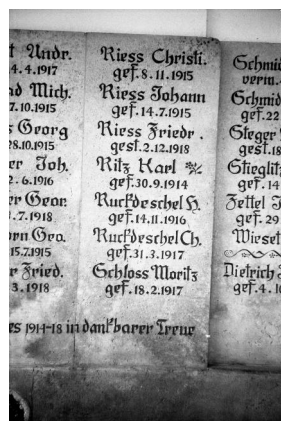 Andr.
4.4.1917
Mich.
7.10.1915
Georg
28.10.1915
Joh.
2.6.1916
Geor.
.7.1918
Geo.
15.7.1915
Fried.
3.1918
Riess Christi.
gef. 8.11.1915
Riess Johann
gef. 14.7.1915
Riess Friedr.
gest. 2.12.1918
Ritz Karl
gef. 30.9.1914
Ruckdeschel H.
gef. 14.11.1916
Ruckdeschel Ch.
gef. 31.3.1917
Schloss Moritz
gef. 18.2.1917
Schmid
verm.
Schmid
gef. 22
Steger
gest. 18
Stieglitz
gef. 14
Zettel
gef. 29
Wieset
Dietrich
gef. 4.10
1914-18 in dankbarer Treue